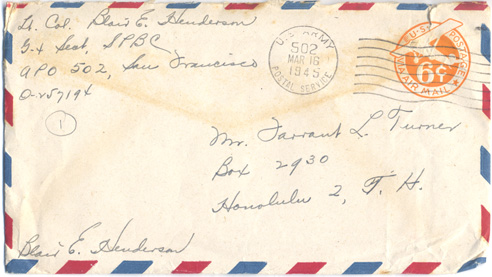 Lt. Col. Blair E. Henderson
G-4 Sect, SPBC
APO 502, San Francisco
O-257194
1
U.S. ARMY
502
MAR 16
1945
POSTAL SERVICE
U.S. POSTAGE
6¢
VIA AIR MAIL
Mr. Farrant L. Turner
Box 2930
Honolulu 2, T. H.
Blair E. Henderson